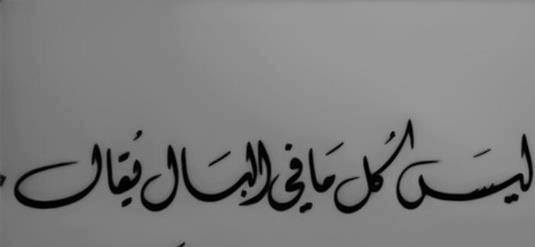 ليس كل ما في البال يُقال